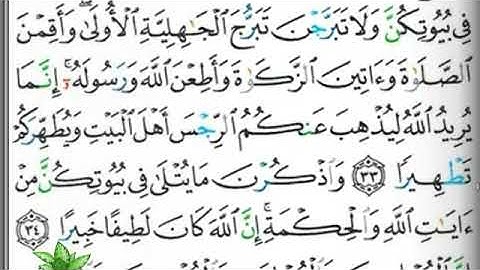 فِي بُيُوتِكُنَّ وَلَا تَبَرَّجْنَ تَبَرُّجَ الْجَٰهِلِيَّةِ الْأُولَىٰ ۖ وَأَقِمْنَ
الصَّلَوٰةَ وَءَاتِينَ الزَّكَوٰةَ وَأَطِعْنَ اللَّهَ وَرَسُولَهُۥٓ ۚ إِنَّمَا
يُرِيدُ اللَّهُ لِيُذْهِبَ عَنكُمُ الرِّجْسَ أَهْلَ الْبَيْتِ وَيُطَهِّرَكُمْ
تَطْهِيرًا ٣٣ وَاذْكُرْنَ مَا يُتْلَىٰ فِي بُيُوتِكُنَّ مِنْ
ءَايَٰتِ اللَّهِ وَالْحِكْمَةِ ۚ إِنَّ اللَّهَ كَانَ لَطِيفًا خَبِيرًا ٣٤